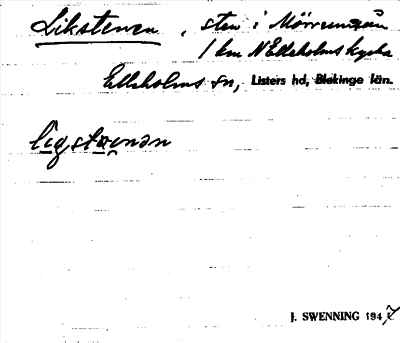 Likstenen, sten i Mörrumsån
1 km N Elleholms kyrka
Elleholms sn, Listers hd, Blekinge län.
ligstænən
J. SWENNING 1947